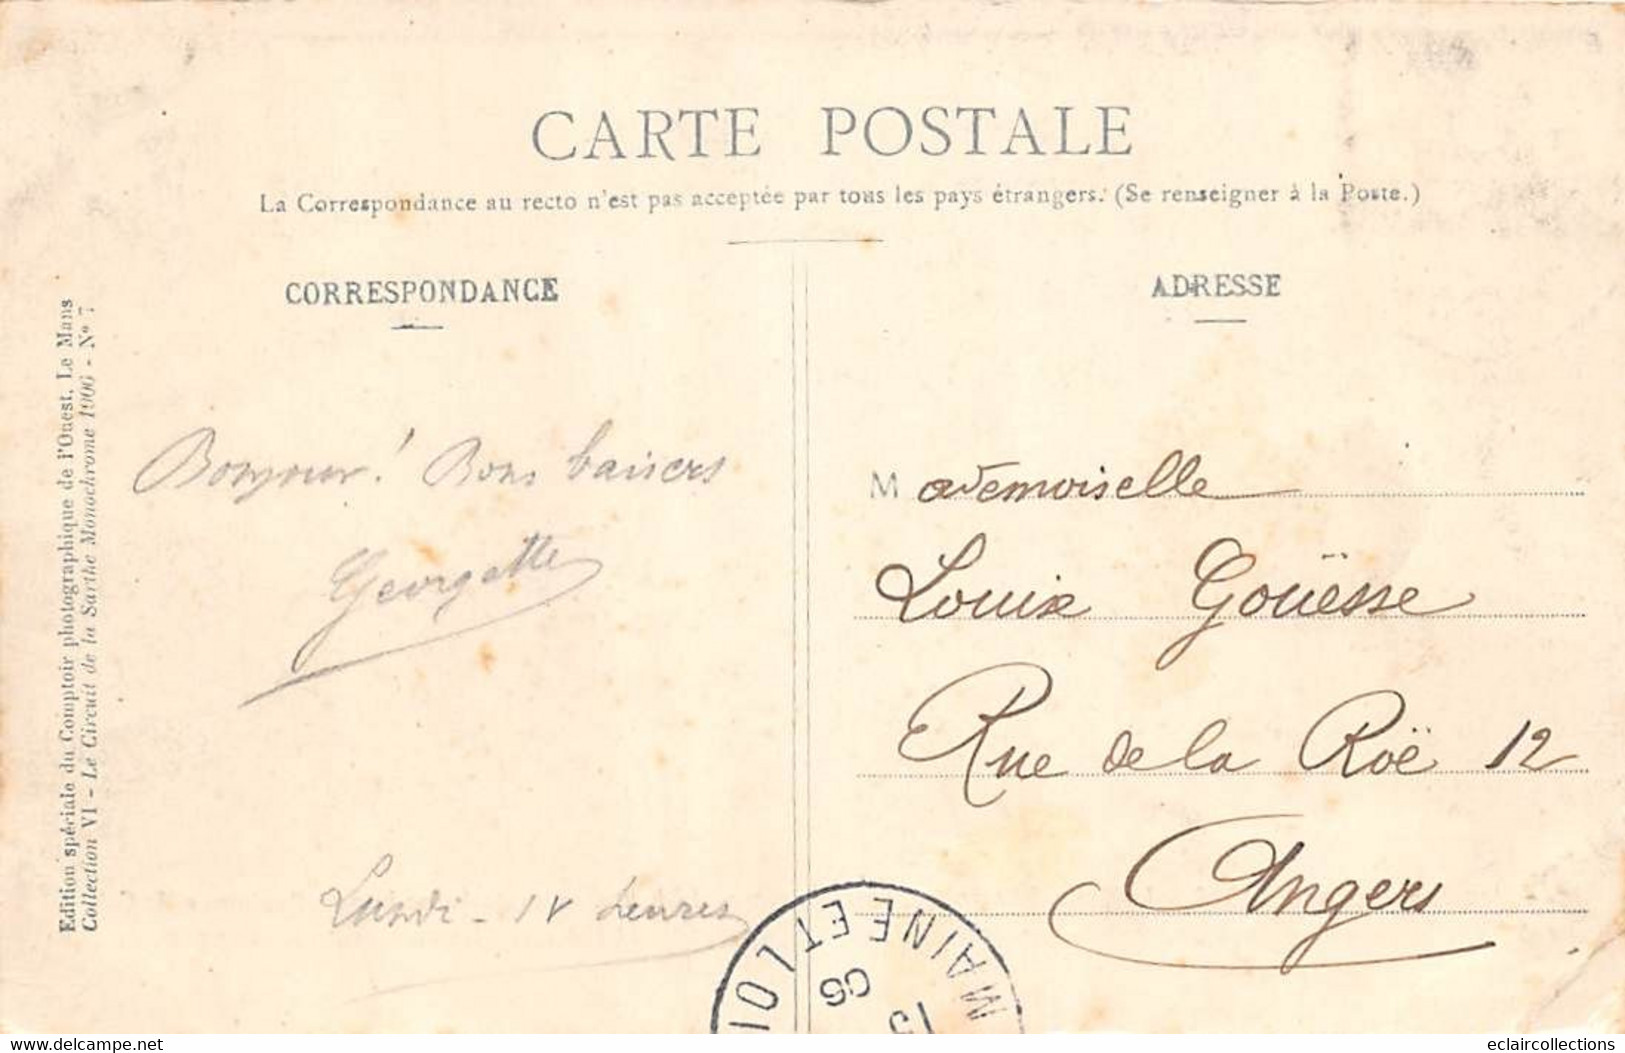 CARTE POSTALE
La Correspondance au recto n'est pas acceptée par tous les pays étrangers. (Se renseigner à la Poste.)
CORRESPONDANCE
ADRESSE
Edition spéciale du Comptoir photographique de l'Ouest, Le Mans
Collection VI - Le Circuit de la Sarthe Monochrome 1906 - N° 7
Bonjour! Bons baisers
Georgette
Lundi - heures
Mademoiselle
Louise Gouësse
Rue de la Roë 12
Angers
MAINE ET LOI
06
eclaircollections